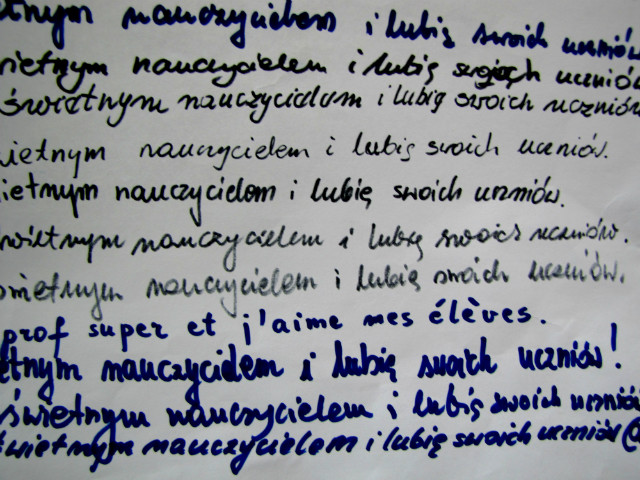 etnym nauczycielem i lubię swoich uczniów
wietnym nauczycielem i lubię swoich uczniów
świetnym nauczycielem i lubię swoich uczniów
wietnym nauczycielem i lubię swoich uczniów.
wietnym nauczycielem i lubię swoich uczniów.
świetnym nauczycielem i lubię swoich uczniów.
świetnym nauczycielem i lubię swoich uczniów.
prof super et j'aime mes élèves.
etnym nauczycielem i lubię swoich uczniów!
świetnym nauczycielem i lubię swoich uczniów
świetnym nauczycielem i lubię swoich uczniów